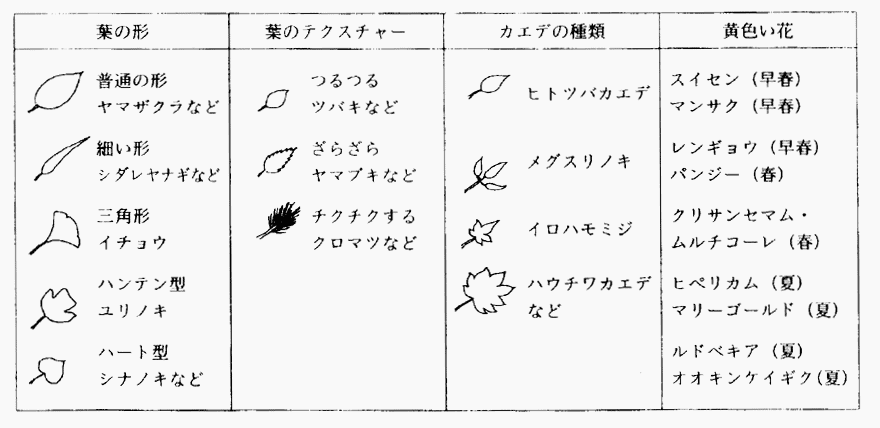 葉の形
普通の形
ヤマザクラなど
細い形
シダレヤナギなど
三角形
イチョウ
ハンテン型
ユリノキ
ハート型
シナノキなど
葉のテクスチャー
つるつる
ツバキなど
ざらざら
ヤマブキなど
チクチクする
クロマツなど
カエデの種類
ヒトツバカエデ
メグスリノキ
イロハモミジ
ハウチワカエデ
など
黄色い花
スイセン（早春）
マンサク（早春）
レンギョウ（早春）
パンジー（春）
クリサンセマム・
ムルチコーレ（春）
ヒペリカム（夏）
マリーゴールド（夏）
ルドベキア（夏）
オオキンケイギク(夏)